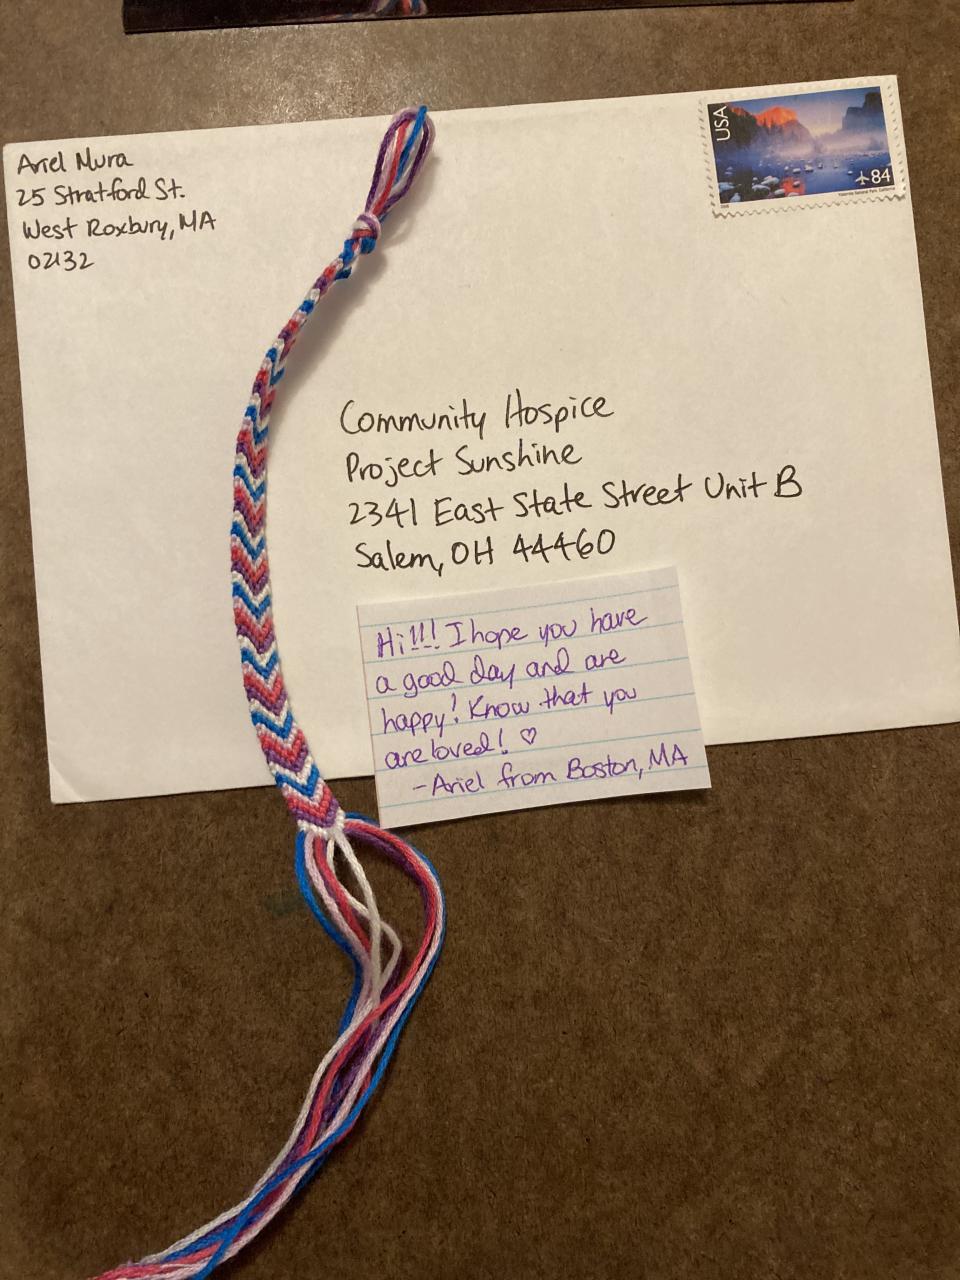 Ariel Mura
25 Stratford St.
West Roxbury, MA
02132
USA
84
Yosemite National Park, California
Community Hospice
Project Sunshine
2341 East State Street Unit B
Salem, OH 44460
Hi!!! I hope you have
a good day and are
happy! Know that you
are loved! ♡
-Ariel from Boston, MA